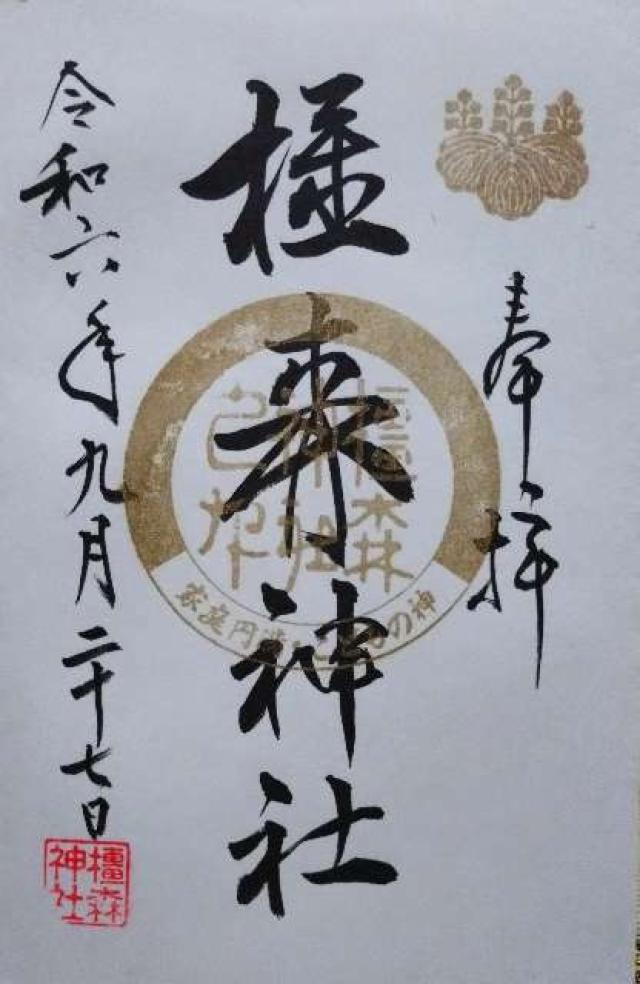 奉拝
橿森神社
橿森
神社
家庭円満こどもの神
令和六年九月二十七日
橿森
神社